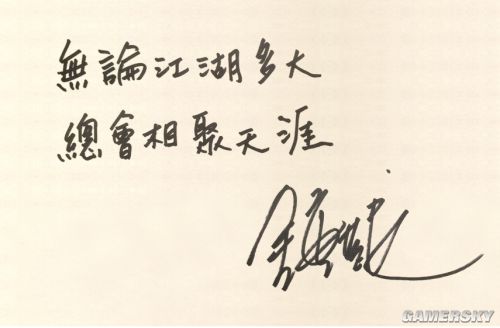 無論江湖多大
總會相聚天涯
GAMERSKY